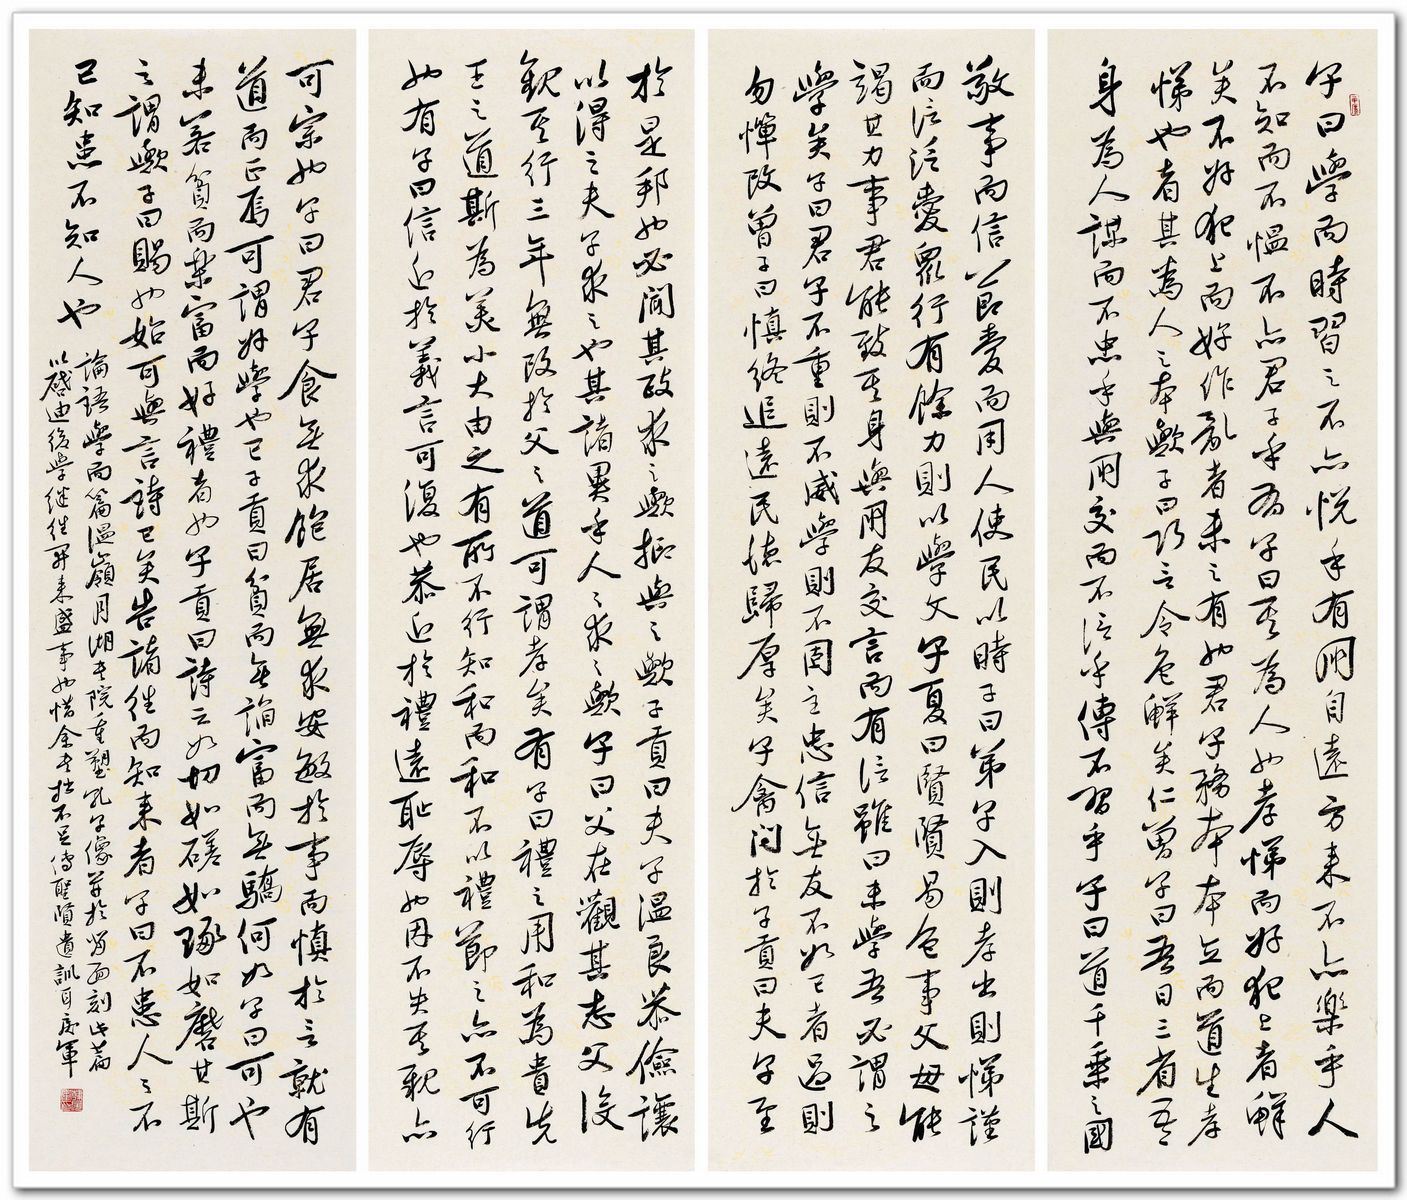 子曰學而時習之不亦悅乎有朋自遠方來不亦樂乎人
不知而不慍不亦君子乎有子曰其為人也孝悌而好犯上者鮮
矣不好犯上而好作亂者未之有也君子務本本立而道生孝
悌也者其為人之本歟子曰巧言令色鮮矣仁曾子曰吾日三省吾
身為人謀而不忠乎與朋交而不信乎傳不習乎子曰道千乘之國
敬事而信節愛而用人使民以時子曰弟子入則孝出則悌謹
而信泛愛眾行有餘力則以學文子夏曰賢賢易色事父母能
竭其力事君能致其身與朋友交言而有信雖曰未學吾必謂之
學矣子曰君子不重則不威學則不固主忠信無友不如己者過則
勿憚改曾子曰慎終追遠民德歸厚矣子禽問於子貢曰夫子至
於是邦也必聞其政求之歟抑與之歟子貢曰夫子溫良恭儉讓
以得之夫子求之也其諸異乎人之求之歟子曰父在觀其志父沒
觀其行三年無改於父之道可謂孝矣有子曰禮之用和為貴先
王之道斯為美小大由之有所不行知和而和不以禮節之亦不可行
也有子曰信近於義言可復也恭近於禮遠恥辱也因不失其親亦
可宗也子曰君子食無求飽居無求安敏於事而慎於言就有
道而正焉可謂好學也已子貢曰貧而無諂富而無驕何如子曰可也
未若貧而樂富而好禮者也子貢曰詩云如切如磋如琢如磨其斯
之謂歟子曰賜也始可與言詩已矣告諸往而知來者子曰不患人之不
己知患不知人也
論語學而篇溫嶺月湖書院重塑孔子像並於背面刻此篇
以啟迪後學繼往開來盛事也惜余書拙不足傳聖賢遺訓耳慶軍